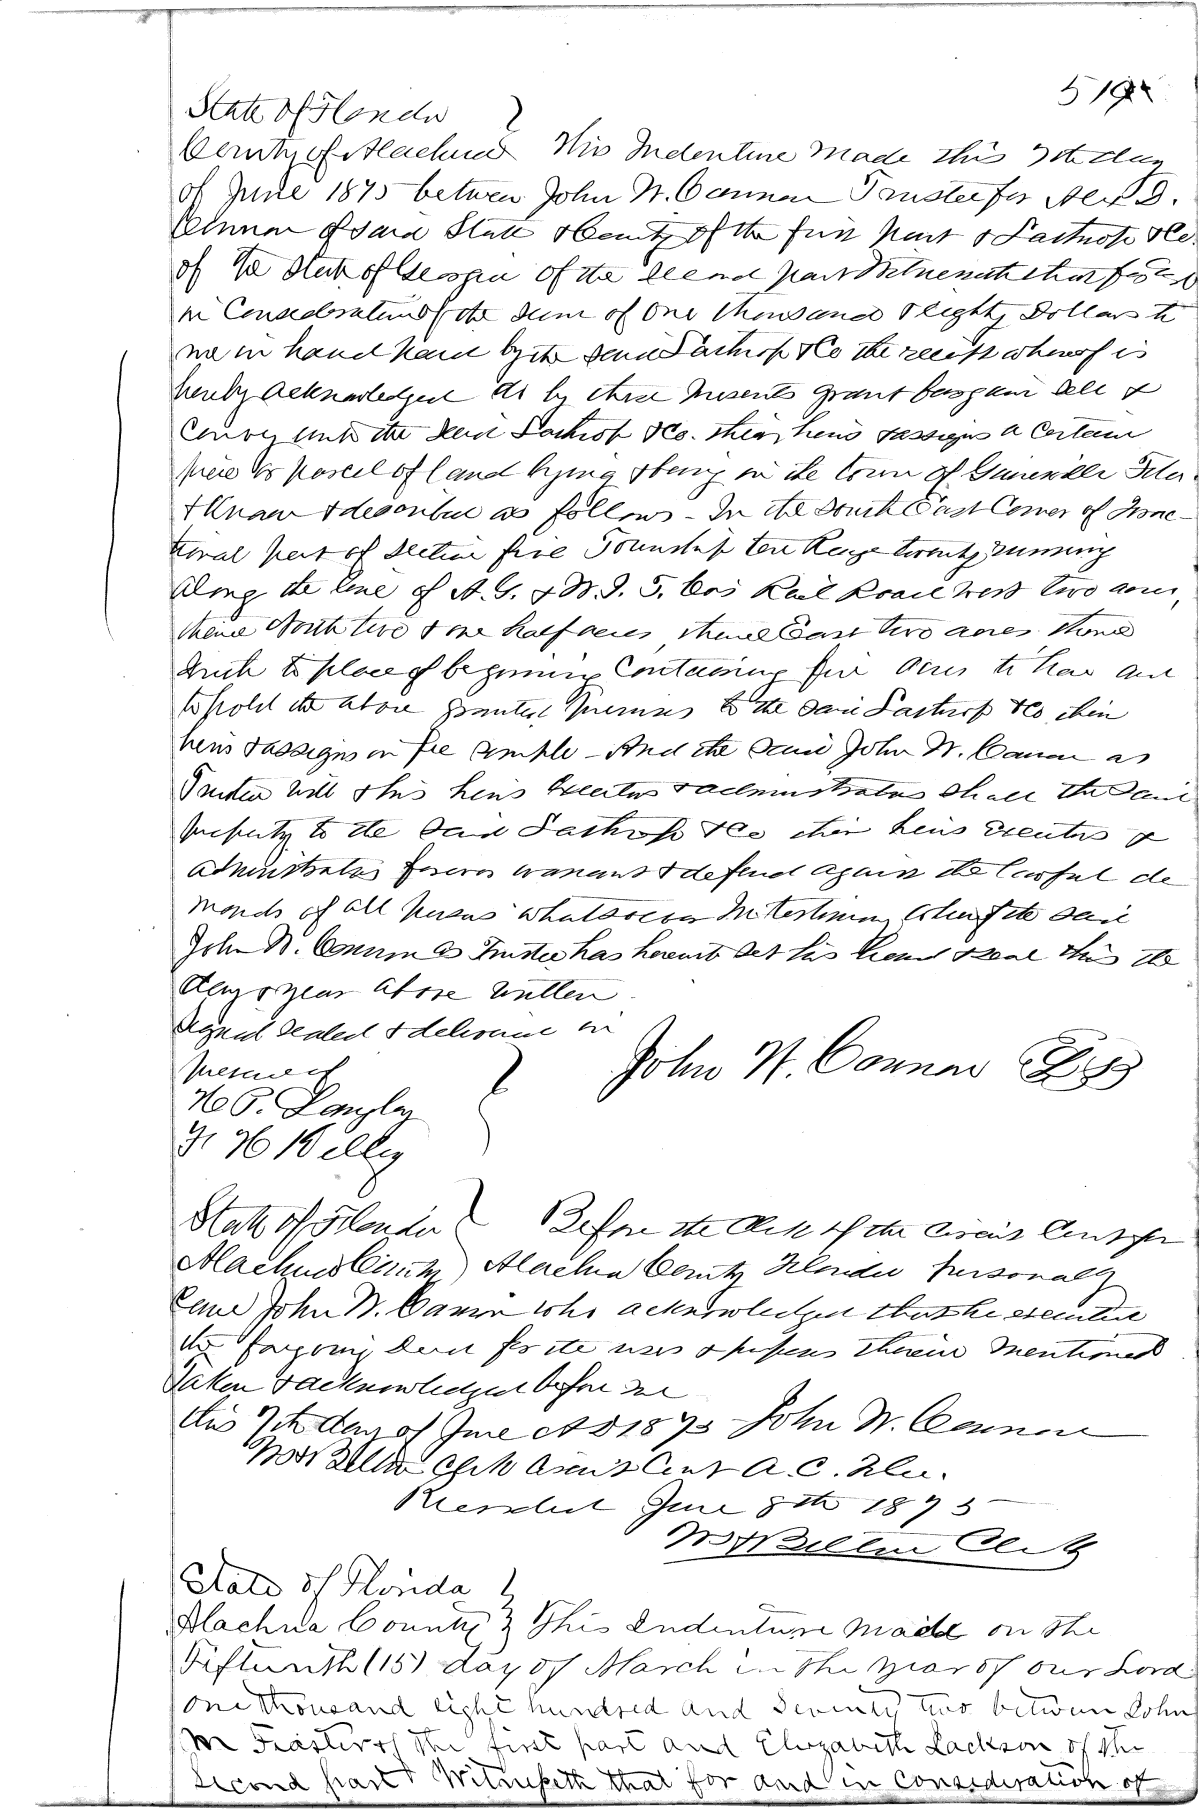 519
State of Florida
County of Alachua This Indenture Made this 7th day
of June 1875 between John W. Cannon Trustee for Alex D.
Cannon of said State & County of the first part & Lathrop & Co.
of the State of Georgia of the second part Witnesseth that for and
in Consideration of the sum of One thousand & Eighty Dollars to
me in hand paid by the said Lathrop & Co the receipt whereof is
hereby acknowledged do by these presents grant bargain sell &
convey unto the said Lathrop & Co. their heirs & assigns a certain
piece or parcel of land lying & being in the town of Gainesville Fla.
& Known & described as follows - In the South East Corner of Frac-
tional part of Section five Township ten Range twenty running
along the line of A. G. & W. I. T. Co's Rail Road West two acres,
thence North two & one half acres, thence East two acres thence
South to place of beginning Containing five acres to have and
to hold the above granted premises to the said Lathrop & Co their
heirs & assigns in fee simple - And the said John W. Cannon as
Trustee will & his heirs Executors & administrators shall the said
property to the said Lathrop & Co their heirs Executors &
administrators forever warrant & defend against the lawful de
mands of all persons whatsoever In testimony whereof the said
John W. Cannon as Trustee has hereunto set his hand & seal this the
day & year above written
Signed sealed & delivered in
presence of John W. Cannon LS
H P. Langley
F H Kelley
State of Florida Before the Clerk of the Circuit Court for
Alachua County Alachua County Florida personally
Came John W. Cannon who acknowledged that he executed
the foregoing Deed for the uses & purposes therein mentioned
Taken & acknowledged before me
this 7th day of June AD 1875 John W. Cannon
Clerk Circuit Court A. C. Fla.
Recorded June 8th 1875
Clerk
State of Florida
Alachua County This Indenture made on the
Fifteenth (15) day of March in the year of our Lord
one thousand eight hundred and Seventy two between John
M of the first part and Elizabeth Jackson of the
Second part Witnesseth that for and in consideration of